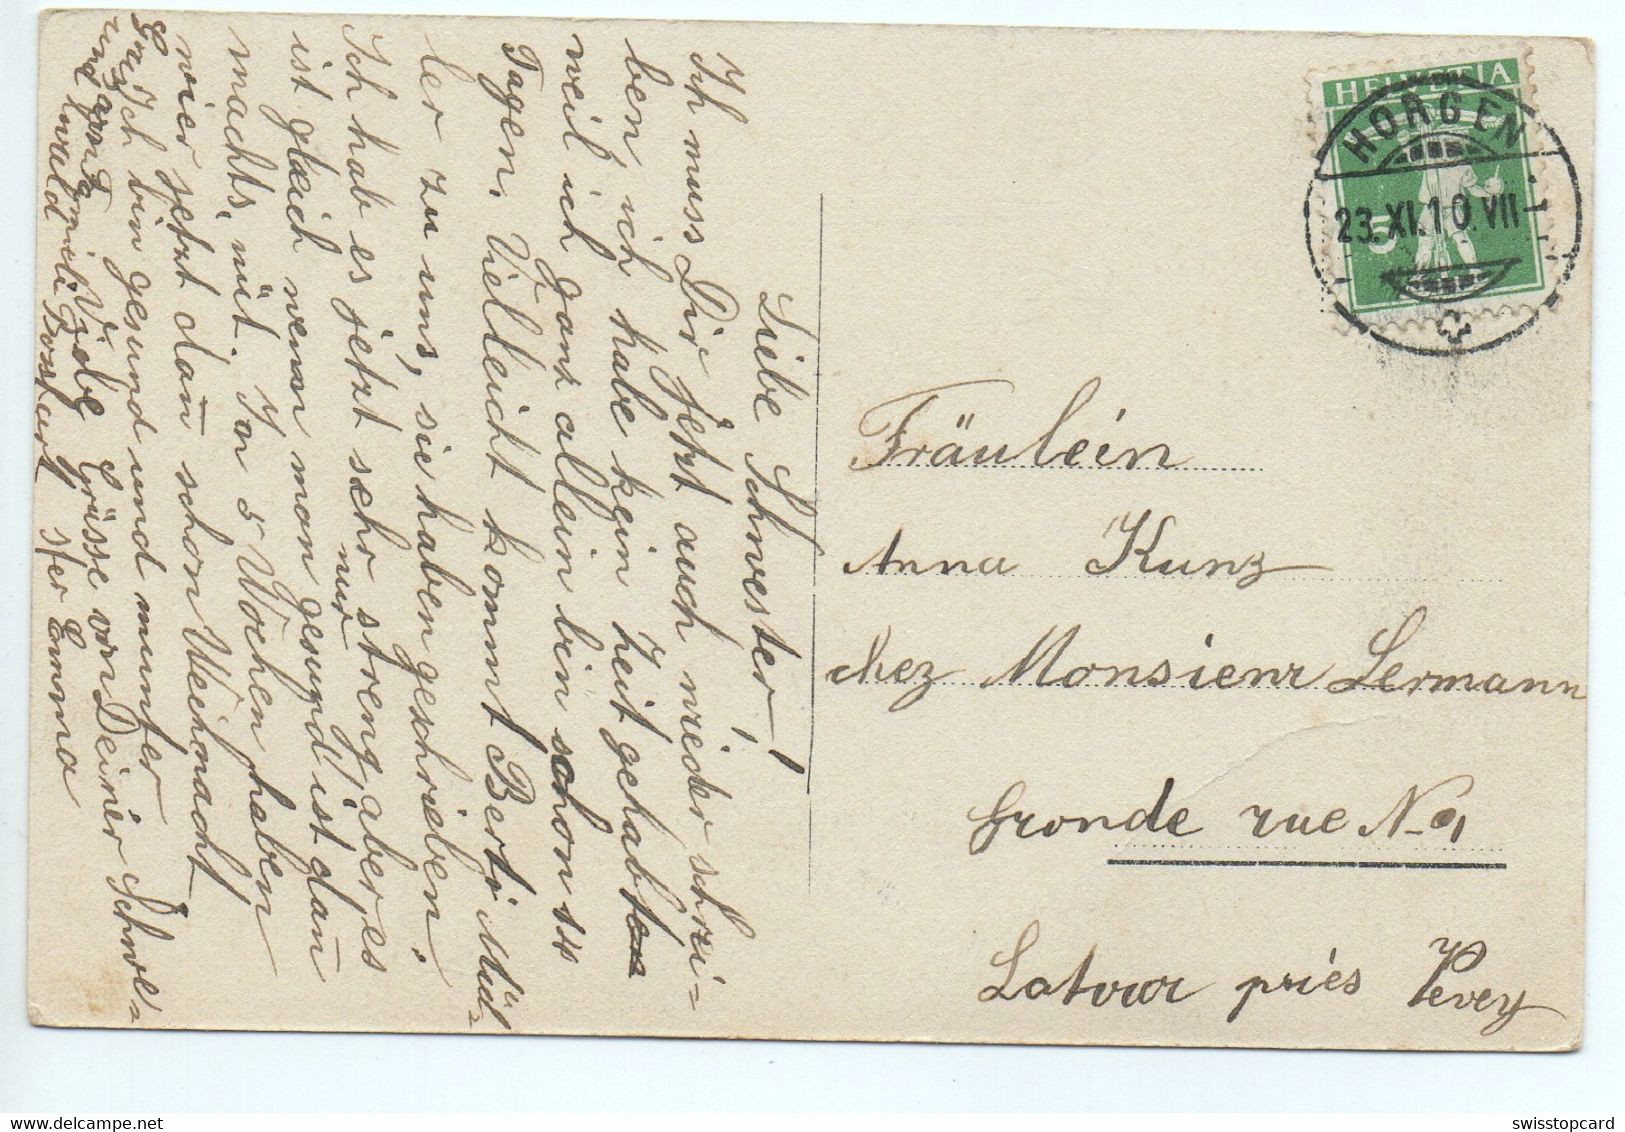 Liebe Schwester!
Ich muss Dir jetzt auch wieder schrei=
ben, ich habe kein Zeit gehabt
weil ich ganz allein bin schon 14
Tagen. Vielleicht kommt Berti Müd=
ler zu uns, sie haben geschrieben.
Ich hab es jetzt sehr streng aber es
ist gleich wenn man nur gesund ist dañ
machts, nüt. In 5 Wochen haben
wier jetzt dañ schon Weihnacht
Ich bin gesund und munter
Viele Grüsse von Deiner Schwe=
ster Emma
HELVETIA
5
HORGEN
23.XI.10.VII
Fräulein
Anna Kunz
chez Monsieur Lermann
Gronde rue No 1
Latour priés Vevey
swisstopcard